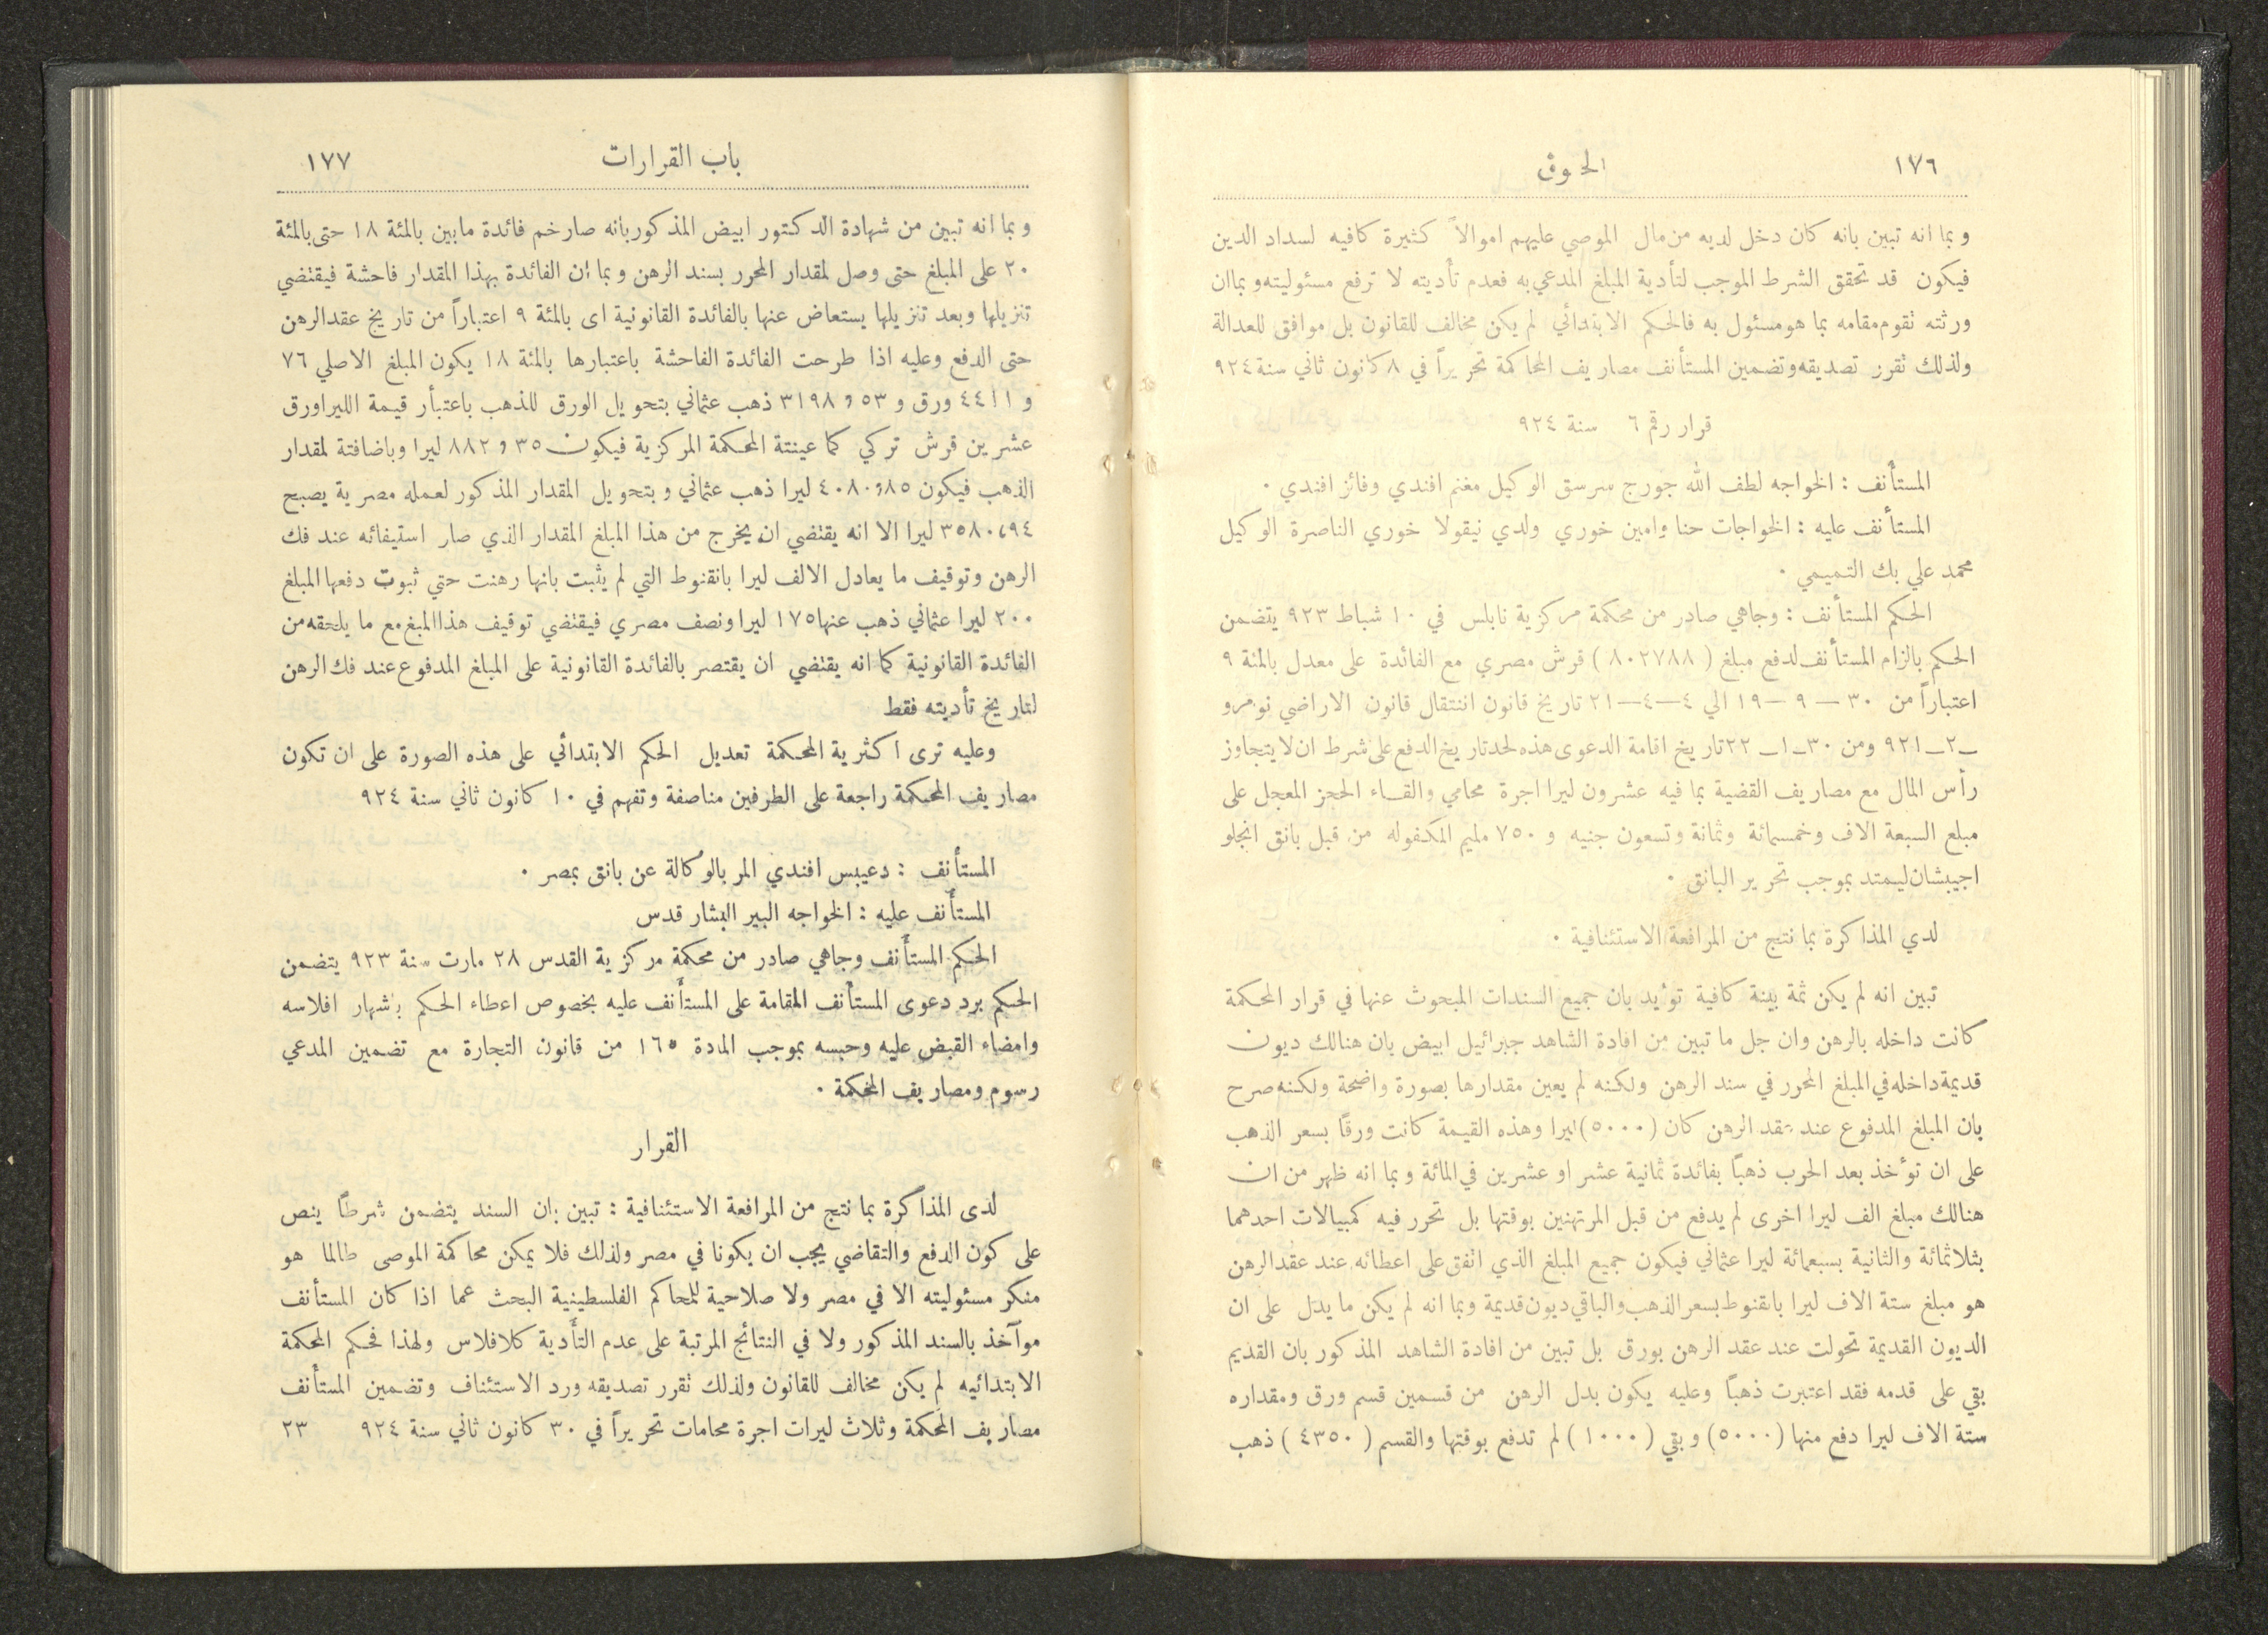 ١٧٦
الحقوق
وبما انه تبين بانه كان دخل لديه من مال الموصي عليهم اموالاً كثيرة كافيه لسداد الدين
فيكون قد تحقق الشرط الموجب لتأدية المبلغ المدعي به فعدم تأديته لا ترفع مسئوليته وبما ان
ورثته تقوم مقامه بما هو مسئول به فالحكم الابتدائي لم يكن مخالف للقانون بل موافق للعدالة
ولذلك تقرر تصديقه وتضمين المستأنف مصاريف المحاكمة تحريراً في ٨ كانون ثاني سنة ٩٢٤
قرار رقم ٦ سنة ٩٢٤
المستأنف : الخواجه لطف الله جورج سرسق الوكيل مغنم افندي وفائز افندي .
المستأنف عليه : الخواجات حنا وامين خوري ولدي نيقولا خوري الناصرة الوكيل
محمد علي بك التميمي .
الحكم المستأنف : وجاهي صادر من محكمة مركزية نابلس في ١٠ شباط ٩٢٣ يتضمن
الحكم بالزام المستأنف لدفع مبلغ ( ٨٠٢٧٨٨ ) قرش مصري مع الفائدة على معدل بالمئة ٩
اعتباراً من ٣٠ — ٩ — ١٩ الي ٤ — ٤ — ٢١ تاريخ قانون انتتقال قانون الاراضي نومرو
— ٢ — ٩٢١ ومن ٣٠ — ١ — ٢٢ تاريخ اقامة الدعوى هذه لحد تاريخ الدفع على شرط ان لا يتجاوز
رأس المال مع مصاريف القضية بما فيه عشرون ليرا اجرة محامي والقاء الحجز المعجل على
مبلع السبعة الاف وخمسمائة وثمانة وتسعون جنيه و ٧٥٠ مليم المكفوله من قبل بانق انجلو
اجيبشان ليمتد بموجب تحرير البانق .
لدي المذاكرة بما نتج من المرافعة الاستئنافية .
تبين انه لم يكن ثمة بينة كافية تؤيد بان جميع السندات المبحوث عنها في قرار المحكمة
كانت داخله بالرهن وان جل ما تبين من افادة الشاهد جبرائيل ابيض بان هنالك ديون
قديمة داخله في المبلغ المحرر في سند الرهن ولكنه لم يعين مقدارها بصورة واضحة ولكنه صرح
بان المبلغ المدفوع عند عقد الرهن كان ( ٥٠٠٠ ) ليرا وهذه القيمة كانت ورقاً بسعر الذهب
على ان تؤخذ بعد الحرب ذهبًا بفائدة ثمانية عشر او عشرين في المائة وبما انه ظهر من ان
هنالك مبلغ الف ليرا اخرى لم يدفع من قبل المرتهنين بوقتها بل تحرر فيه كمبيالات احدهما
بثلاثمائة والثانية بسبعمائة ليرا عثماني فيكون جميع المبلغ الذي اتفق على اعطائه عند عقد الرهن
هو مبلغ ستة الاف ليرا بانقنوط بسعر الذهب والباقي ديون قديمة وبما انه لم يكن ما يدل على ان
الديون القديمة تحولت عند عقد الرهن بورق بل تبين من افادة الشاهد المذكور بان القديم
بقي على قدمه فقد اعتبرت ذهبًا وعليه يكون بدل الرهن من قسمين قسم ورق ومقداره
ستة الاف ليرا دفع منها ( ٥٠٠٠ ) وبقي ( ١٠٠٠ ) لم تدفع بوقتها والقسم ( ٤٣٥٠ ) ذهب
باب القرارات
١٧٧
وبما انه تبين من شهادة الدكتور ابيض المذكور بانه صار خم فائدة ما بين بالمئة ١٨ حتى بالمئة
٢٠ على المبلغ حتى وصل لمقدار المحرر بسند الرهن وبما ان الفائدة بهذا المقدار فاحشة فيقتضي
تنزيلها وبعد تنزيلها يستعاض عنها بالفائدة القانونية اى بالمئة ٩ اعتباراً من تاريخ عقد الرهن
حتى الدفع وعليه اذا طرحت الفائدة الفاحشة باعتبارها بالمئة ١٨ يكون المبلغ الاصلي ٧٦
و ٤٤١١ ورق و ٥٣ و ٣١٩٨ ذهب عثماني بتحويل الورق للذهب باعتبأر قيمة الليرا ورق
عشرين قرش تركي كما عينتة المحكمة المركزية فيكون ٣٥ و ٨٨٢ ليرا وباضافتة لمقدار
الذهب فيكون ٨٥ و ٤٠٨٠ ليرا ذهب عثماني وبتحويل المقدار المذكور لعمله مصرية يصبح
٣٥٨٠،٩٤ ليرا الا انه يقتضي ان يخرج من هذا المبلغ المقدار الذي صار استيفائه عند فك
الرهن وتوقيف ما يعادل الالف ليرا بانقنوط التي لم يثبت بانها رهنت حتي ثبوت دفعها المبلغ
٢٠٠ ليرا عثماني ذهب عنها ١٧٥ ليرا ونصف مصري فيقتضي توقيف هذا المبغ مع ما يلحقه من
الفائدة القانونية كما انه يقتضي ان يقتصر بالفائدة القانونية على المبلغ المدفوع عند فك الرهن
لتاريخ تأديته فقط
وعليه ترى اكثرية المحكمة تعديل الحكم الابتدائي على هذه الصورة على ان تكون
مصاريف المحكمة راجعة على الطرفين مناصفة وتفهم في ١٠ كانون ثاني سنة ٩٢٤
المستأنف : دعيبس افندي المر بالوكالة عن بانق بمصر .
المستأنف عليه : الخواجه البير البشار قدس
الحكم المستأنف وجاهي صادر من محكمة مركزية القدس ٢٨ مارت سنة ٩٢٣ يتضمن
الحكم برد دعوى المستأنف المقامة على المستأنف عليه بخصوص اعطاء الحكم باشهار افلاسه
وامضاء القبض عليه وحبسه بموجب المادة ١٦٥ من قانون التجارة مع تضمين المدعي
رسوم ومصاريف المحكمة .
القرار
لدى المذاكرة بما نتج من المرافعة الاستئنافية : تبين بان السند يتضمن شرطاً ينص
على كون الدفع والتقاضي يجب ان يكونا في مصر ولذلك فلا يمكن محاكمة الموصى طالما هو
منكر مسئوليته الا في مصر ولا صلاحية للمحاكم الفلسطينية البحث عما اذا كان المستأنف
موآخذ بالسند المذكور ولا في النتائج المرتبة على عدم التأدية كلافلاس ولهذا فحكم المحكمة
الابتدائيه لم يكن مخالف للقانون ولذلك تقرر تصديقه ورد الاستئناف وتضمين المستأنف
مصاريف المحكمة وثلاث ليرات اجرة محامات تحريراً في ٣٠ كانون ثاني سنة ٩٢٤ ٢٣